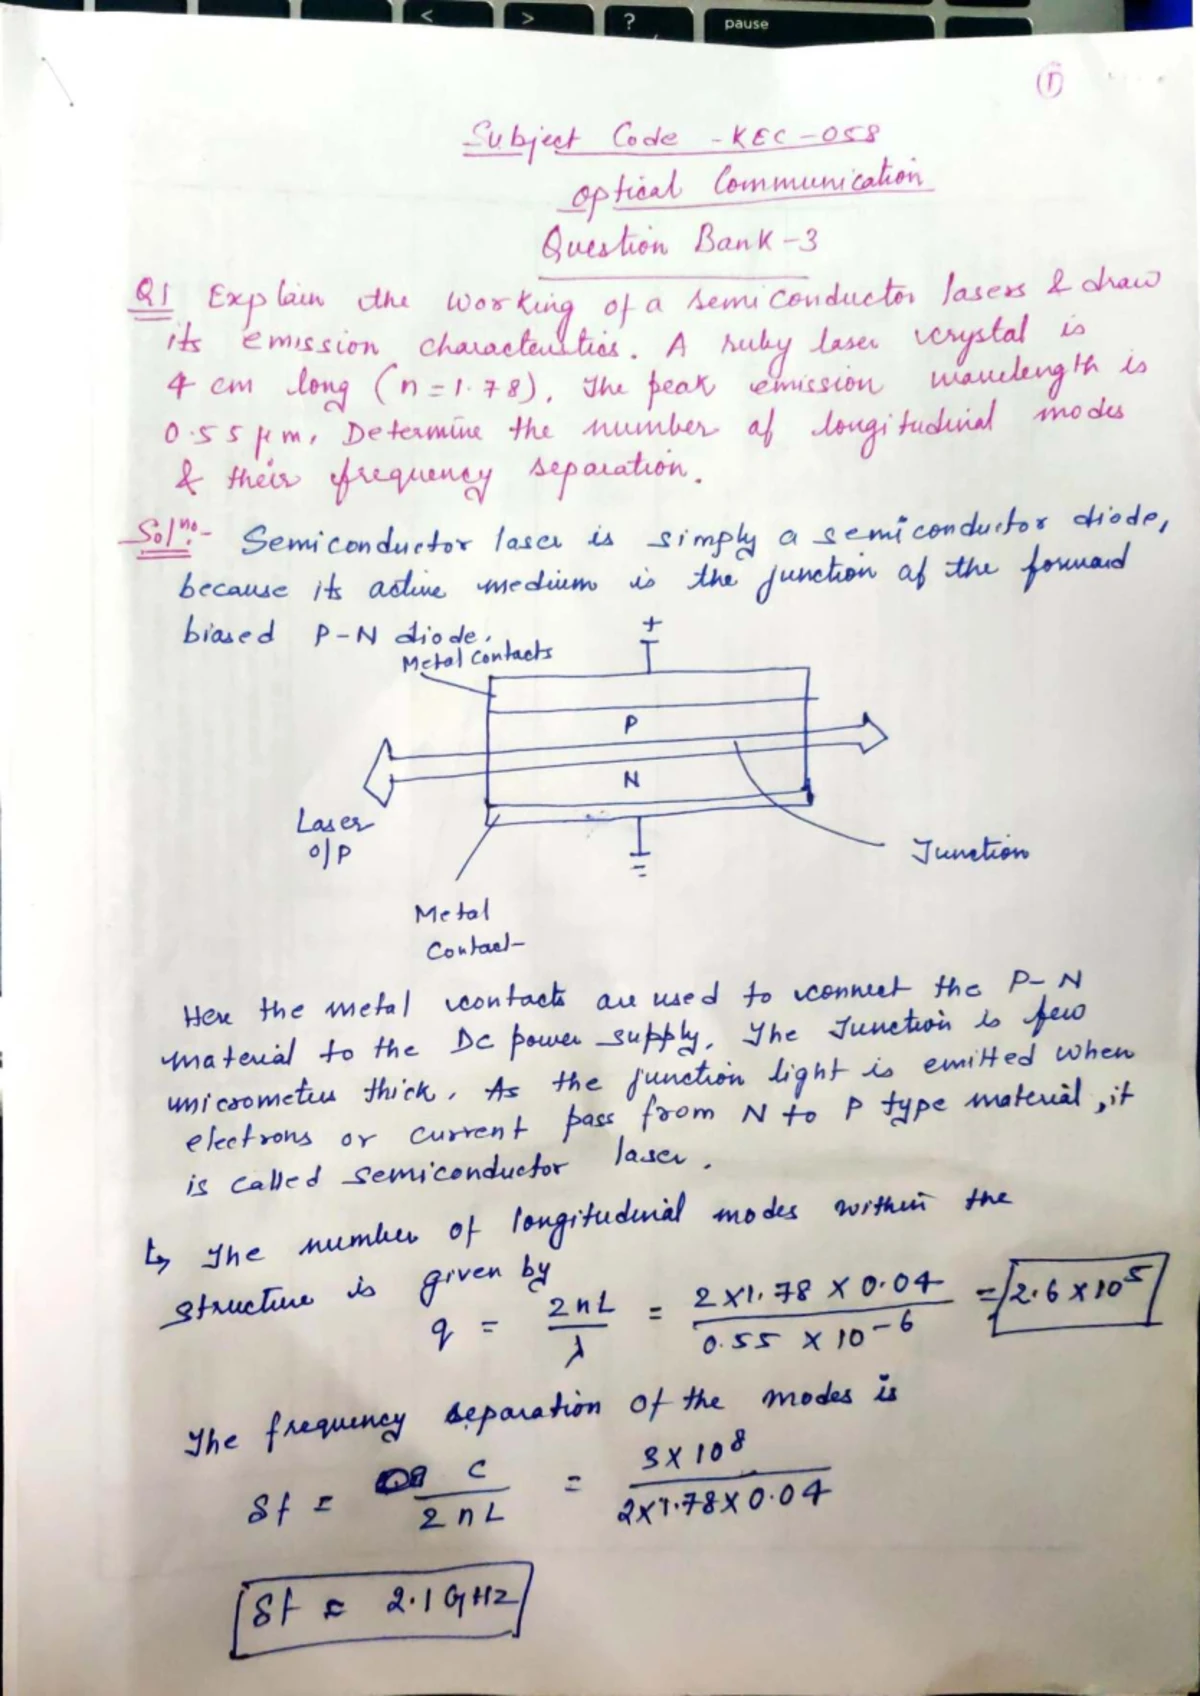 < > ? pause
(1)
Subject Code - KEC-058
Optical Communication
Question Bank-3
Q1 Explain the working of a semiconductor lasers & draw
its emission characteristics. A ruby laser crystal is
4 cm long (n=1.78). The peak emission wavelength is
0.55 μm. Determine the number of longitudinal modes
& their frequency separation.
Solno:- Semiconductor laser is simply a semiconductor diode,
because its active medium is the junction of the forward
biased P-N diode.
Metal Contacts
+
P
N
Laser
O/P
Junction
Metal
Contact
Here the metal contacts are used to connect the P-N
material to the DC power supply. The Junction is few
micrometers thick. As the junction light is emitted when
electrons or current pass from N to P type material, it
is called semiconductor laser.
↳ The number of longitudinal modes within the
structure is given by
q = 2nL/λ = 2×1.78×0.04/0.55×10-6 = 2.6×10^5
The frequency separation of the modes is
δf = c/2nL = 3×10^8/2×1.78×0.04
δf = 2.1 GHz